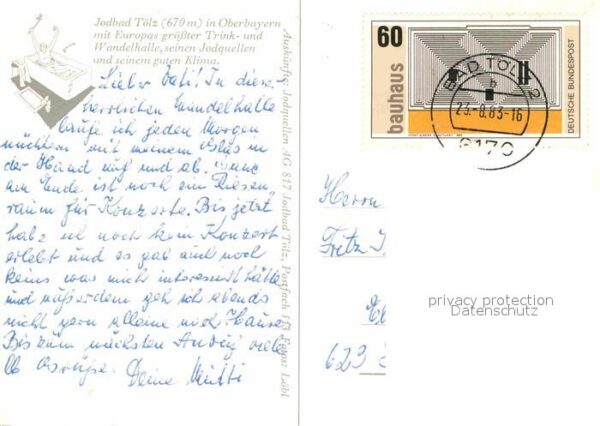 Jodbad Tölz (670 m) in Oberbayern
mit Europas größter Trink- und
Wandelhalle, seinen Jodquellen
und seinem guten Klima.
Lieber Vati! In dieser
herrlichen Wandelhalle
laufe ich jeden Morgen
nüchtern mit meinem Glas in
der Hand auf und ab. Ganz
am Ende ist noch ein Riesen
raum für Konzerte. Bis jetzt
habe ich noch kein Konzert
erlebt und es gab auch noch
keins was mich interessiert hätte
und außerdem geh ich abends
nicht gern alleine nach Hause.
Bis zum nächsten Anruf viele
lb
Deine Mutti
Auskünfte: Jodquellen AG 817 Jodbad Tölz, Postfach
Löbl
60
bauhaus
DEUTSCHE BUNDESPOST
BAD TÖLZ 2
23.-8.83-16
8170
Herrn
Fritz
623
privacy protection
Datenschutz